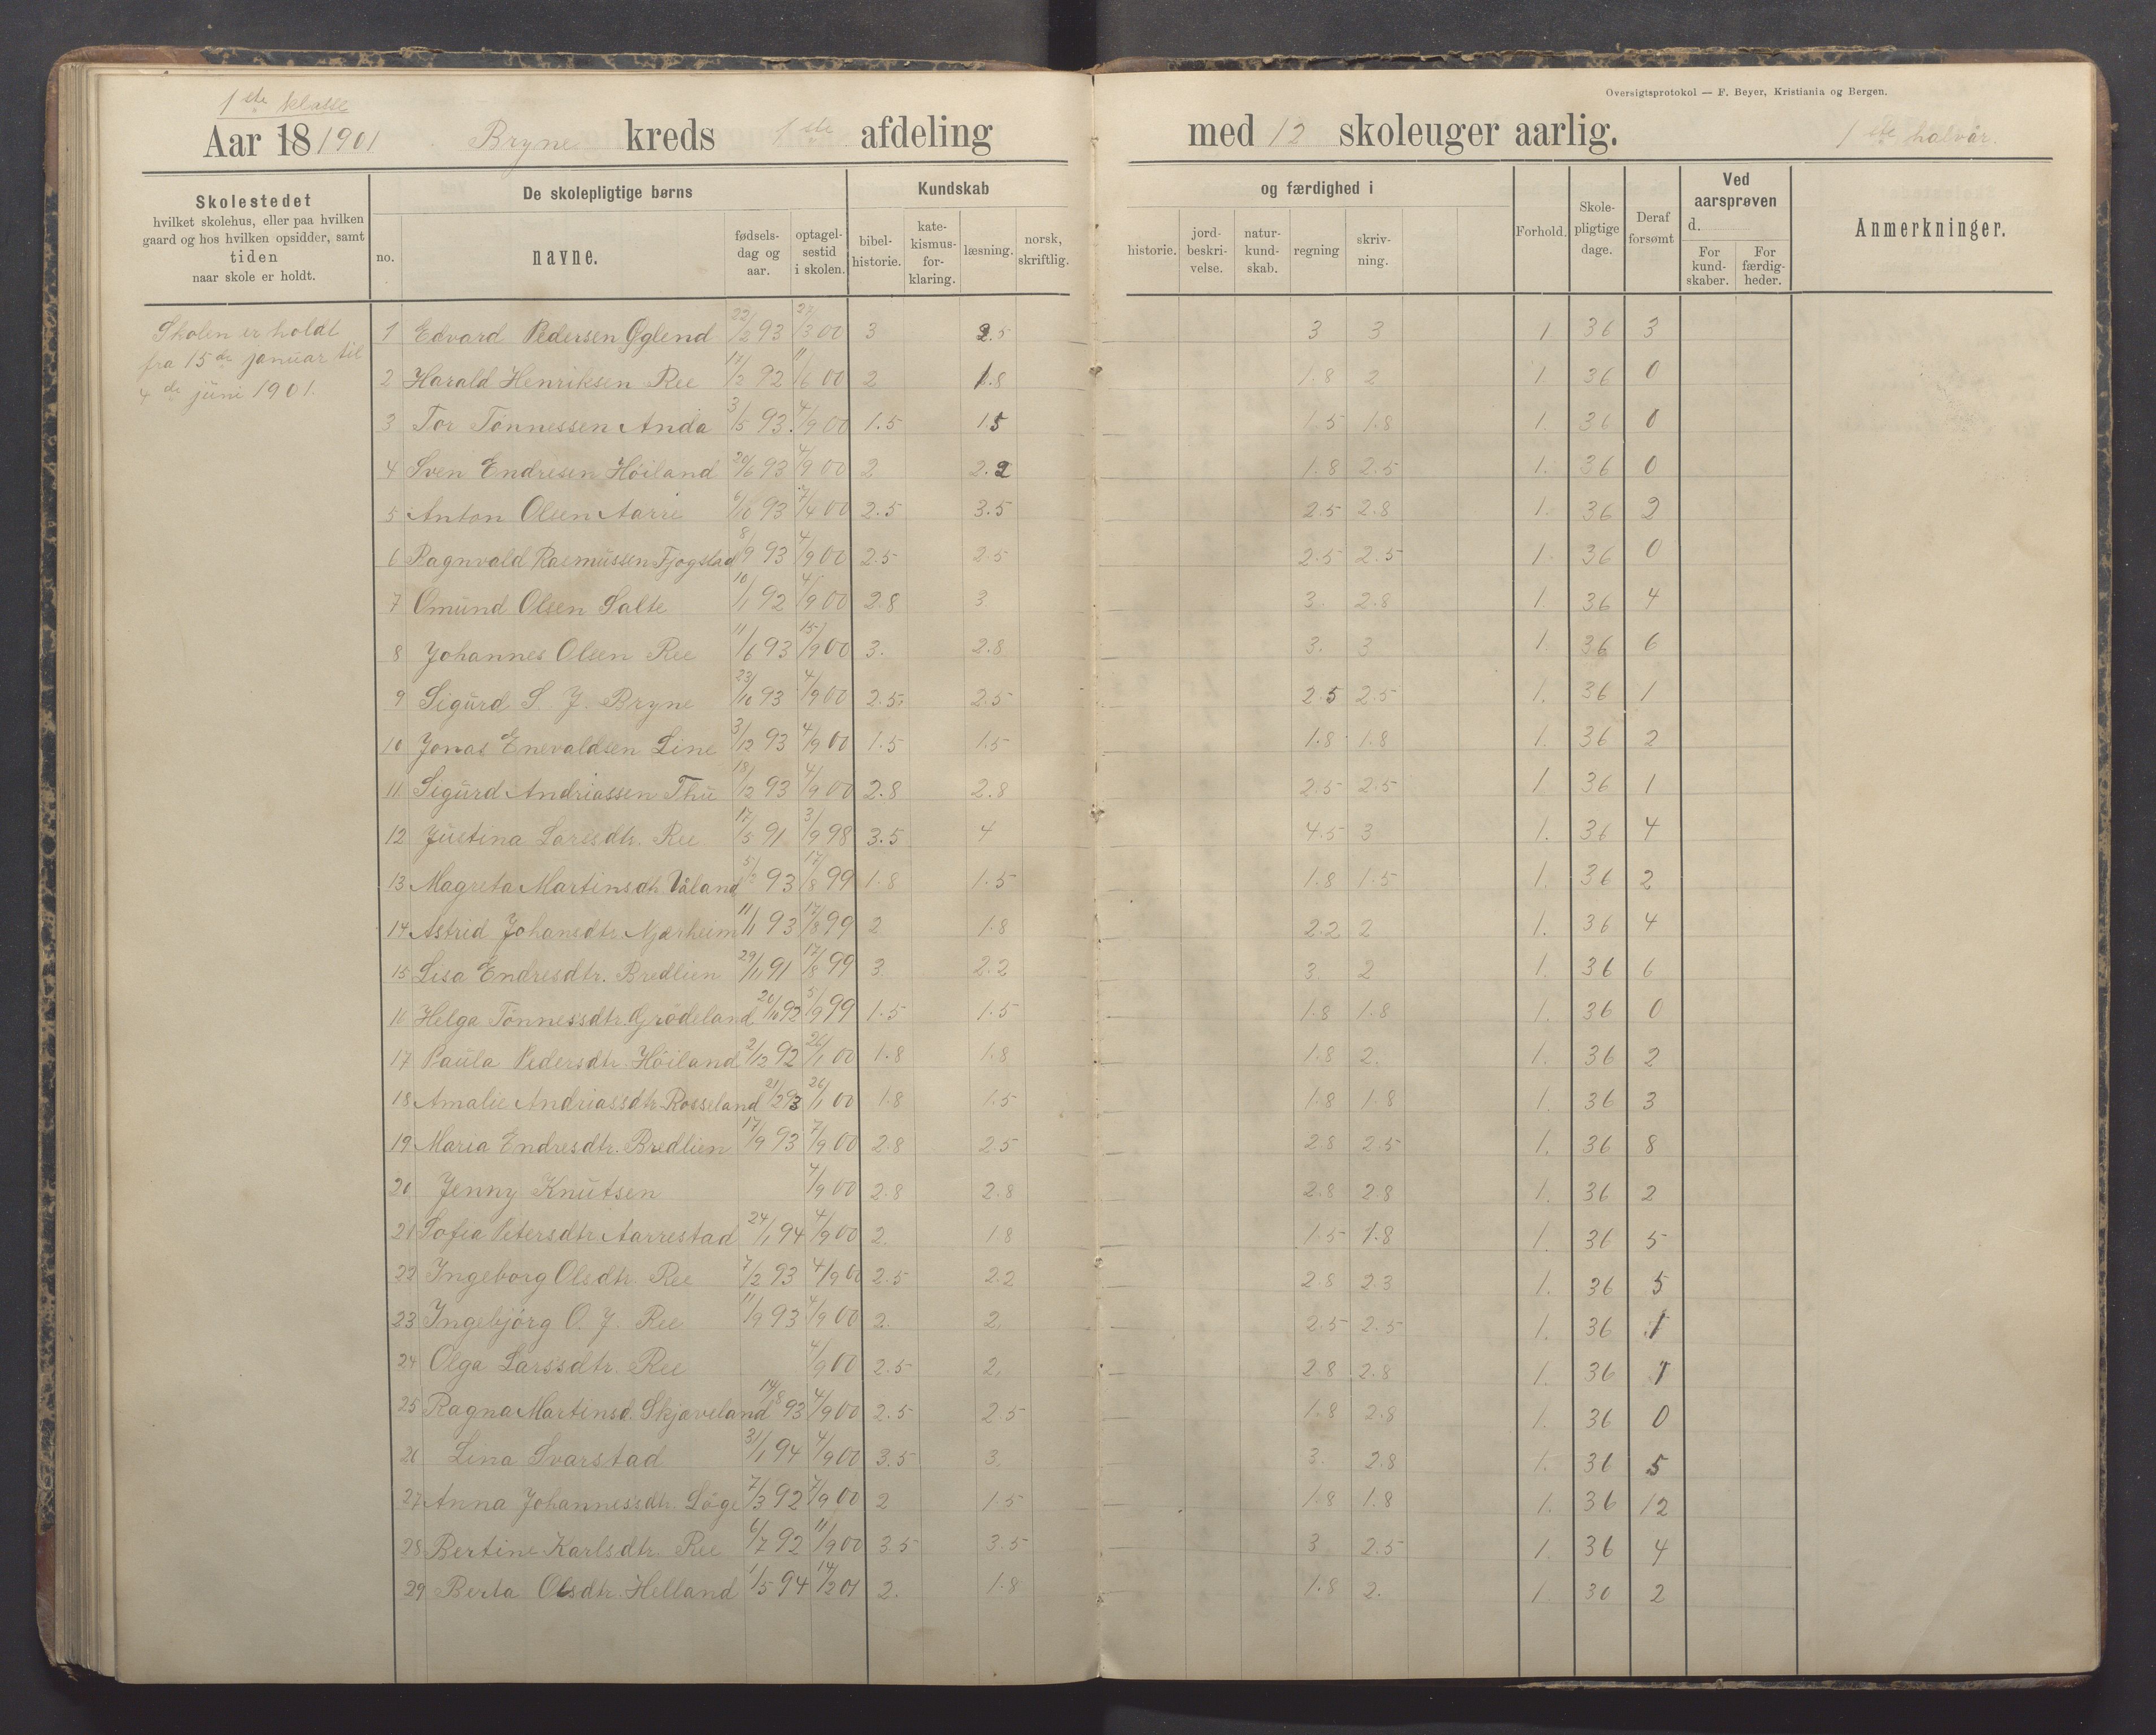 Oversigtsprotokol — F. Beyer, Kristiania og Bergen.
1ste klasse
Aar 18 1901 Bryne kreds 1ste afdeling med 12 skoleuger aarlig. 1ste halvår.
Skolestedet hvilket skolehus, eller paa hvilken gaard og hos hvilken opsidder, samt tiden naar skole er holdt.
De skolepligtige børns
no. navne. fødsels-dag og aar. optagel-sestid i skolen.
Kundskab og færdighed i
bibel-historie. kate-kismus-for-klaring. læsning. norsk, skriftlig. historie. jord-beskri-velse. natur-kund-skab. regning skriv-ning.
Forhold. Skole-pligtige dage. Deraf forsømt
Ved aarsprøven d. For kund-skaber. For færdig-heder.
Anmerkninger.
Skolen er holdt
fra 15de januar til
4de juni 1901.
1 Edvard Pedersen Øglend 22/2 93 27/3 00 3 2.5 3 3 1. 36 3
2 Harald Henriksen Ree 17/2 92 11/6 00 2 1.8 1.8 2 1. 36 0
3 Tor Tönnessen Anda 3/5 93. 4/9 00 1.5 1.5 1.5 1.8 1. 36 0
4 Sven Endresen Höiland 20/6 93 4/9 00 2 2.2 1.8 2.5 1. 36 0
5 Anton Olsen Aarre 6/10 93 7/4 00 2.5 3.5 2.5 2.8 1. 36 2
6 Ragnvald Rasmussen Fjogstad 8/9 93 4/9 00 2.5 2.5 2.5 2.5 1. 36 0
7 Omund Olsen Salte 10/1 92 4/9 00 2.8 3 3. 2.8 1. 36 4
8 Johannes Olsen Ree 11/6 93 15/9 00 3. 2.8 3. 3 1. 36 6
9 Sigurd S. J. Bryne 23/10 93 4/9 00 2.5. 2.5 2 5 2.5 1. 36 1
10 Jonas Enevaldsen Line 3/12 93 4/9 00 1.5 1.5 1.8 1.8 1. 36 2
11 Sigurd Andriassen Thu 18/12 93 4/9 00 2.8 2.8 2.5 2.5 1. 36 1
12 Justina Larsdtr. Ree 17/5 91 3/9 98 3.5 4 4.5 3 1. 36 4
13 Magreta Martinsdtr. Våland 5/2 93 17/8 99 1.8 1.5 1.8 1.5 1. 36 2
14 Astrid Johansdtr. Njærheim 11/1 93 17/8 99 2 1.8 2.2 2 1. 36 4
15 Lisa Endresdtr. Bredlien 29/11 91 17/8 99 3. 2.2 3. 2 1. 36 6
16 Helga Tönnesdtr. Grödeland 20/10 92 5/9 99 1.5 1.5 1.8 1.8 1. 36 0
17 Paula Pedersdtr. Höiland 2/12 92 26/1 00 1.8 1.8 1.8 2. 1. 36 2
18 Amalie Andriassdtr. Rosseland 21/2 93 26/1 00 1.8 1.5 1.8 1.8 1. 36 3
19 Maria Endresdtr. Bredlien 17/9 93 7/9 00 2.8 2.5 2.8 2.5 1. 36 8
20 Jenny Knutsen 4/9 00 2.8 2.8 2.8 2.8 1. 36 2
21 Sofia Petersdtr. Aarrestad 24/1 94 4/9 00 2. 1.8 1.5 1.8 1. 36 5
22 Ingeborg Olsdtr. Ree 7/2 93 4/9 00 2.5 2.2 2.8 2.3 1. 36 5
23 Ingebjörg O. J. Ree 11/9 93 4/9 00 2. 2. 2.5 2.5 1. 36 1
24 Olga Larssdtr. Ree 4/9 00 2.5 2. 2.8 2.8 1. 36 1
25 Ragna Martinsd. Skjæveland 14/8 93 4/9 00 2.5 2.5 1.8 2.8 1. 36 0
26 Lina Svarstad 31/1 94 4/9 00 3.5 3. 3. 2.8 1. 36 5
27 Anna Johannessdtr. Löge 7/3 92 7/9 00 2 1.5 1.8 1.8 1. 36 12
28 Bertine Karlsdtr. Ree 6/7 92 11/9 00 3 5 3.5 3 2.5 1. 36 4
29 Berta Olsdtr. Helland 1/5 94 14/2 01 2. 1.8 1.8 2. 1. 30 2